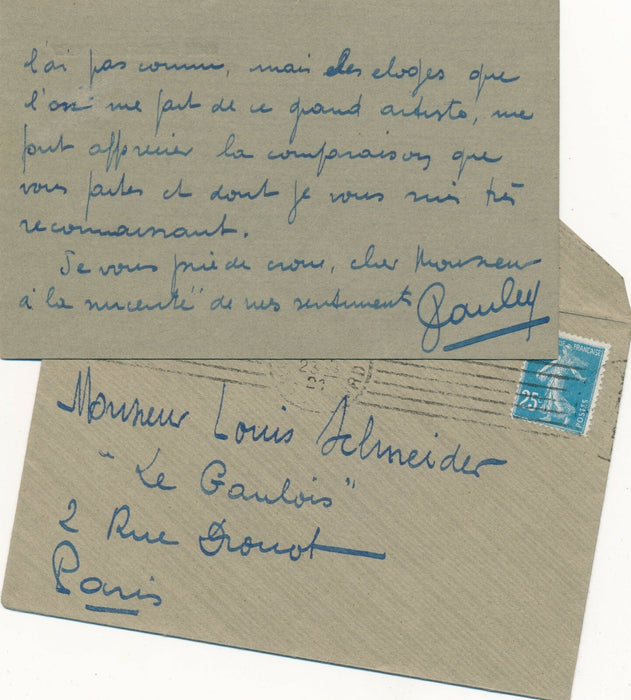 l'ai pas connu, mais les eloges que
l'on me fait de ce grand artiste, me
font apprecier la comparaison que
vous faites et dont je vous suis très
reconnaissant.
Je vous prie de croire, cher Monsieur
à la sincerité de mes sentiments
Pauley
Monsieur Louis Schneider
"Le Gaulois"
2 Rue Drouot
Paris
FRANÇAISE
25c
POSTES